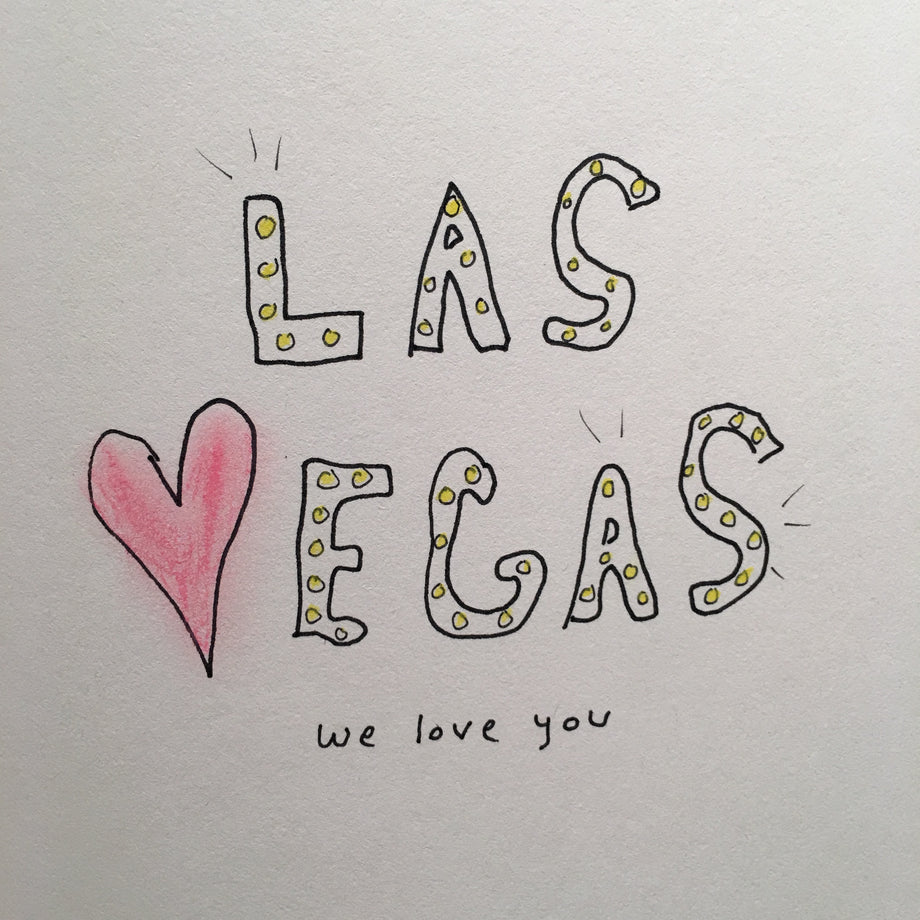 LAS
♥EGAS
we love you